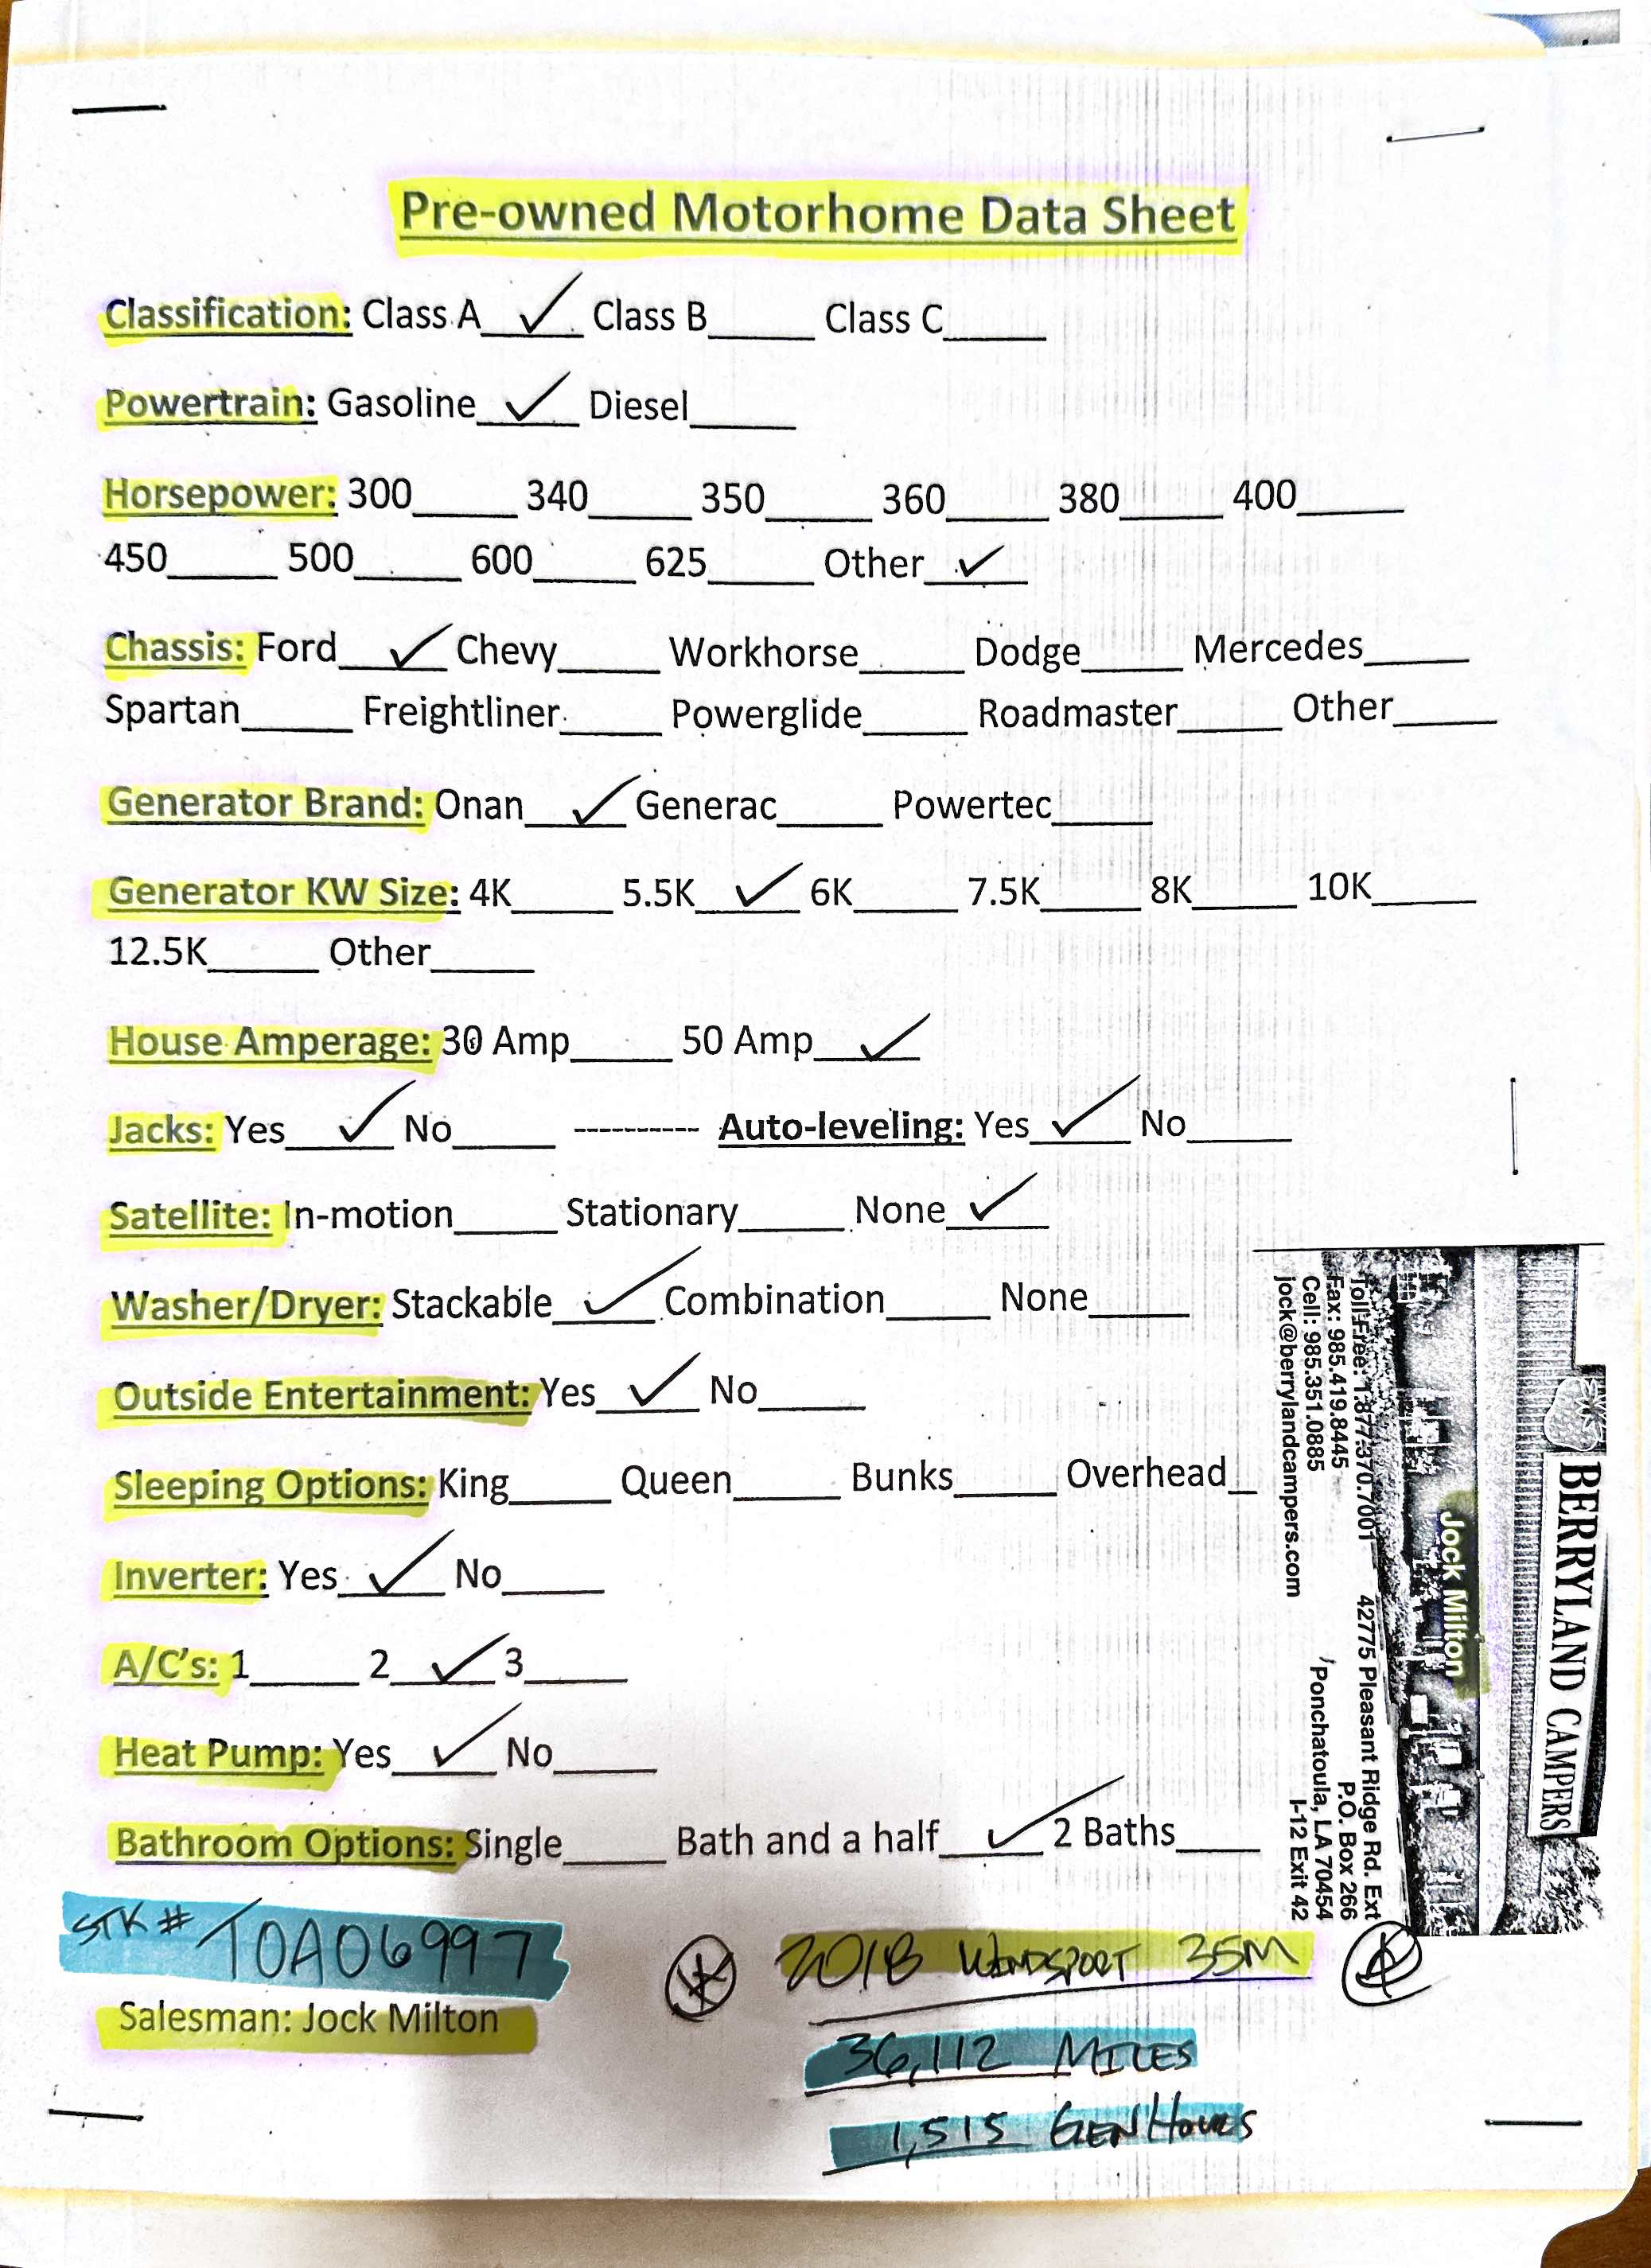 Pre-owned Motorhome Data Sheet
Classification: Class A__✓__ Class B_____ Class C_____
Powertrain: Gasoline__✓__ Diesel_____
Horsepower: 300_____ 340_____ 350_____ 360_____ 380_____ 400_____
450_____ 500_____ 600_____ 625_____ Other__✓__
Chassis: Ford__✓__ Chevy_____ Workhorse_____ Dodge_____ Mercedes_____
Spartan_____ Freightliner_____ Powerglide_____ Roadmaster_____ Other_____
Generator Brand: Onan__✓__ Generac_____ Powertec_____
Generator KW Size: 4K_____ 5.5K__✓__ 6K_____ 7.5K_____ 8K_____ 10K_____
12.5K_____ Other_____
House Amperage: 30 Amp_____ 50 Amp__✓__
Jacks: Yes__✓__ No_____ ---------- Auto-leveling: Yes__✓__ No_____
Satellite: In-motion_____ Stationary_____ None__✓__
Washer/Dryer: Stackable__✓__ Combination_____ None_____
Outside Entertainment: Yes__✓__ No_____
Sleeping Options: King_____ Queen_____ Bunks_____ Overhead_
Inverter: Yes__✓__ No_____
A/C's: 1_____ 2__✓__ 3_____
Heat Pump: Yes__✓__ No_____
Bathroom Options: Single_____ Bath and a half__✓__ 2 Baths_____
STK # TOA06997
Salesman: Jock Milton
2018 WINDSPORT 35M
36,112 MILES
1,515 GEN HOURS
BERRYLAND CAMPERS
Jock Milton
Toll Free: 1.877.370.7001
Fax: 985.419.8445
Cell: 985.351.0885
jock@berrylandcampers.com
42775 Pleasant Ridge Rd. Ext
P.O. Box 266
Ponchatoula, LA 70454
I-12 Exit 42